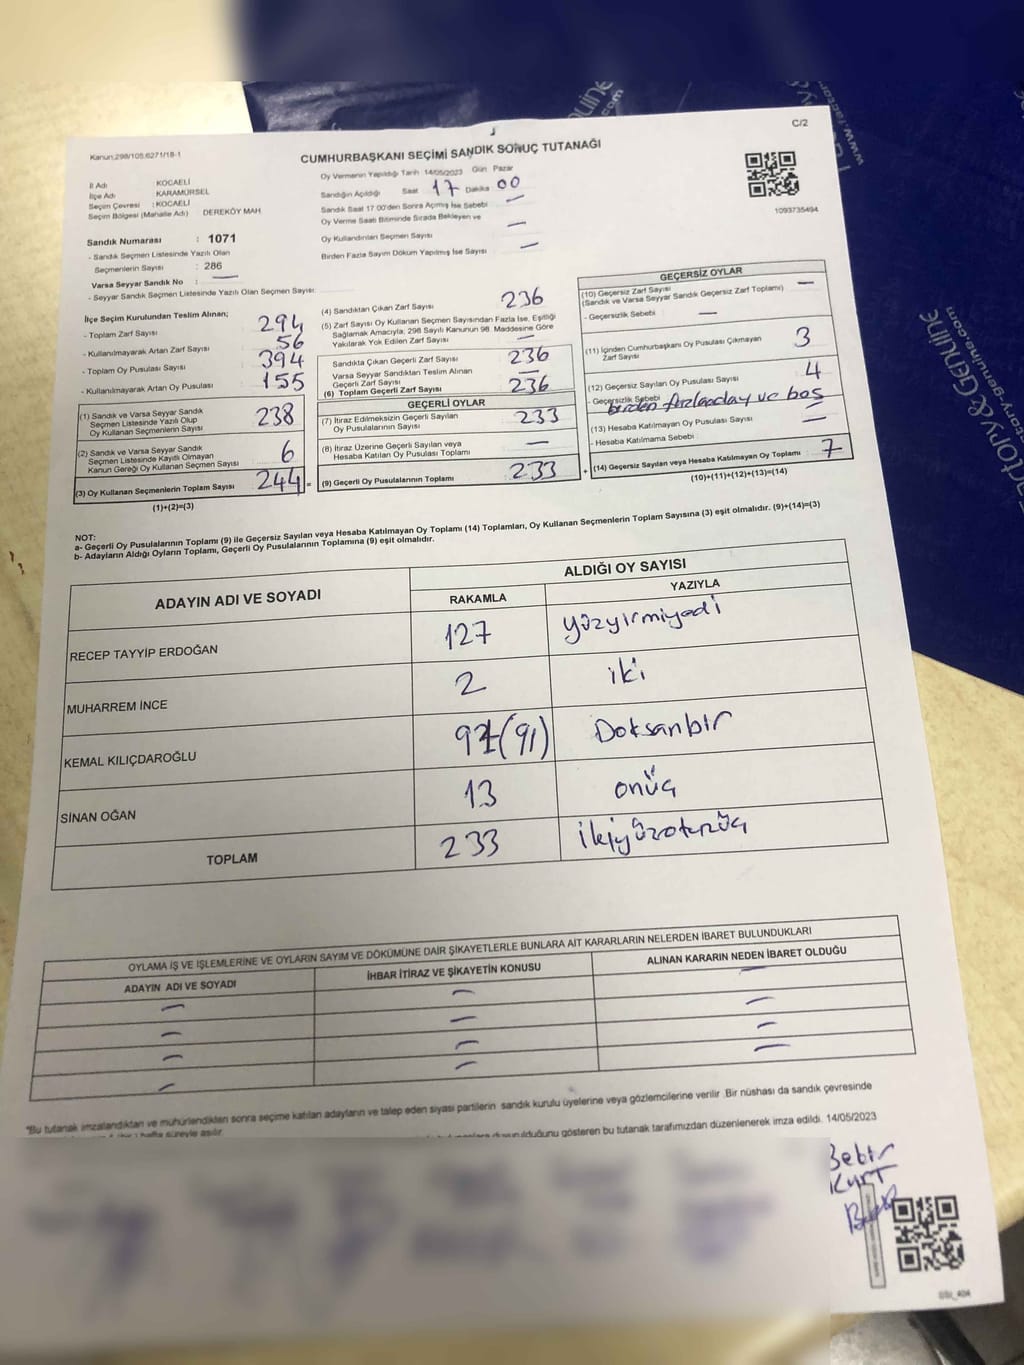 C/2
Kanun:298/105,6271/18-1
CUMHURBAŞKANI SEÇİMİ SANDIK SONUÇ TUTANAĞI
İl Adı KOCAELİ
İlçe Adı KARAMÜRSEL
Seçim Çevresi : KOCAELİ
Seçim Bölgesi (Mahalle Adı) DEREKÖY MAH
Oy Vermenin Yapıldığı Tarih 14/05/2023 Gün Pazar
Sandığın Açıldığı Saat 17 Dakika 00
Sandık Saat 17 00'den Sonra Açılmış İse Sebebi —
Oy Verme Saati Bitiminde Sırada Bekleyen ve
Oy Kullandırılan Seçmen Sayısı —
Birden Fazla Sayım Döküm Yapılmış İse Sayısı —
1093735494
Sandık Numarası : 1071
- Sandık Seçmen Listesinde Yazılı Olan
Seçmenlerin Sayısı : 286
Varsa Seyyar Sandık No : —
- Seyyar Sandık Seçmen Listesinde Yazılı Olan Seçmen Sayısı:
İlçe Seçim Kurulundan Teslim Alınan;
- Toplam Zarf Sayısı 294
- Kullanılmayarak Artan Zarf Sayısı 56
- Toplam Oy Pusulası Sayısı 394
- Kullanılmayarak Artan Oy Pusulası 155
(1) Sandık ve Varsa Seyyar Sandık
Seçmen Listesinde Yazılı Olup
Oy Kullanan Seçmenlerin Sayısı 238
(2) Sandık ve Varsa Seyyar Sandık
Seçmen Listesinde Kayıtlı Olmayan
Kanun Gereği Oy Kullanan Seçmen Sayısı 6
(3) Oy Kullanan Seçmenlerin Toplam Sayısı 244 =
(1)+(2)=(3)
(4) Sandıktan Çıkan Zarf Sayısı 236
(5) Zarf Sayısı Oy Kullanan Seçmen Sayısından Fazla İse, Eşitliği
Sağlamak Amacıyla; 298 Sayılı Kanunun 98. Maddesine Göre
Yakılarak Yok Edilen Zarf Sayısı —
Sandıkta Çıkan Geçerli Zarf Sayısı 236
Varsa Seyyar Sandıktan Teslim Alınan
Geçerli Zarf Sayısı —
(6) Toplam Geçerli Zarf Sayısı 236
GEÇERLİ OYLAR
(7) İtiraz Edilmeksizin Geçerli Sayılan
Oy Pusulalarının Sayısı 233
(8) İtiraz Üzerine Geçerli Sayılan veya
Hesaba Katılan Oy Pusulası Toplamı —
(9) Geçerli Oy Pusulalarının Toplamı 233 +
GEÇERSİZ OYLAR
(10) Geçersiz Zarf Sayısı
(Sandık ve Varsa Seyyar Sandık Geçersiz Zarf Toplamı) —
- Geçersizlik Sebebi —
(11) İçinden Cumhurbaşkanı Oy Pusulası Çıkmayan
Zarf Sayısı 3
(12) Geçersiz Sayılan Oy Pusulası Sayısı 4
- Geçersizlik Sebebi birden fazla aday ve boş
(13) Hesaba Katılmayan Oy Pusulası Sayısı —
- Hesaba Katılmama Sebebi —
(14) Geçersiz Sayılan veya Hesaba Katılmayan Oy Toplamı 7
(10)+(11)+(12)+(13)=(14)
NOT:
a- Geçerli Oy Pusulalarının Toplamı (9) ile Geçersiz Sayılan veya Hesaba Katılmayan Oy Toplamı (14) Toplamları, Oy Kullanan Seçmenlerin Toplam Sayısına (3) eşit olmalıdır. (9)+(14)=(3)
b- Adayların Aldığı Oyların Toplamı, Geçerli Oy Pusulalarının Toplamına (9) eşit olmalıdır.
ADAYIN ADI VE SOYADI ALDIĞI OY SAYISI
RAKAMLA YAZIYLA
RECEP TAYYİP ERDOĞAN 127 yüzyirmiyedi
MUHARREM İNCE 2 iki
KEMAL KILIÇDAROĞLU 91 (91) Doksanbir
SİNAN OĞAN 13 onüç
TOPLAM 233 ikiyüzotuzüç
OYLAMA İŞ VE İŞLEMLERİNE VE OYLARIN SAYIM VE DÖKÜMÜNE DAİR ŞİKAYETLERLE BUNLARA AİT KARARLARIN NELERDEN İBARET BULUNDUKLARI
ADAYIN ADI VE SOYADI İHBAR İTİRAZ VE ŞİKAYETİN KONUSU ALINAN KARARIN NEDEN İBARET OLDUĞU
— — —
— — —
— — —
— — —
*Bu tutanak imzalandıktan ve mühürlendikten sonra seçime katılan adayların ve talep eden siyasi partilerin sandık kurulu üyelerine veya gözlemcilerine verilir. Bir nüshası da sandık çevresinde
hafta süreyle asılır duyurulduğunu gösteren bu tutanak tarafımızdan düzenlenerek imza edildi. 14/05/2023
Bebir
Kurt
Factory&Genuine
factory-genuine.com